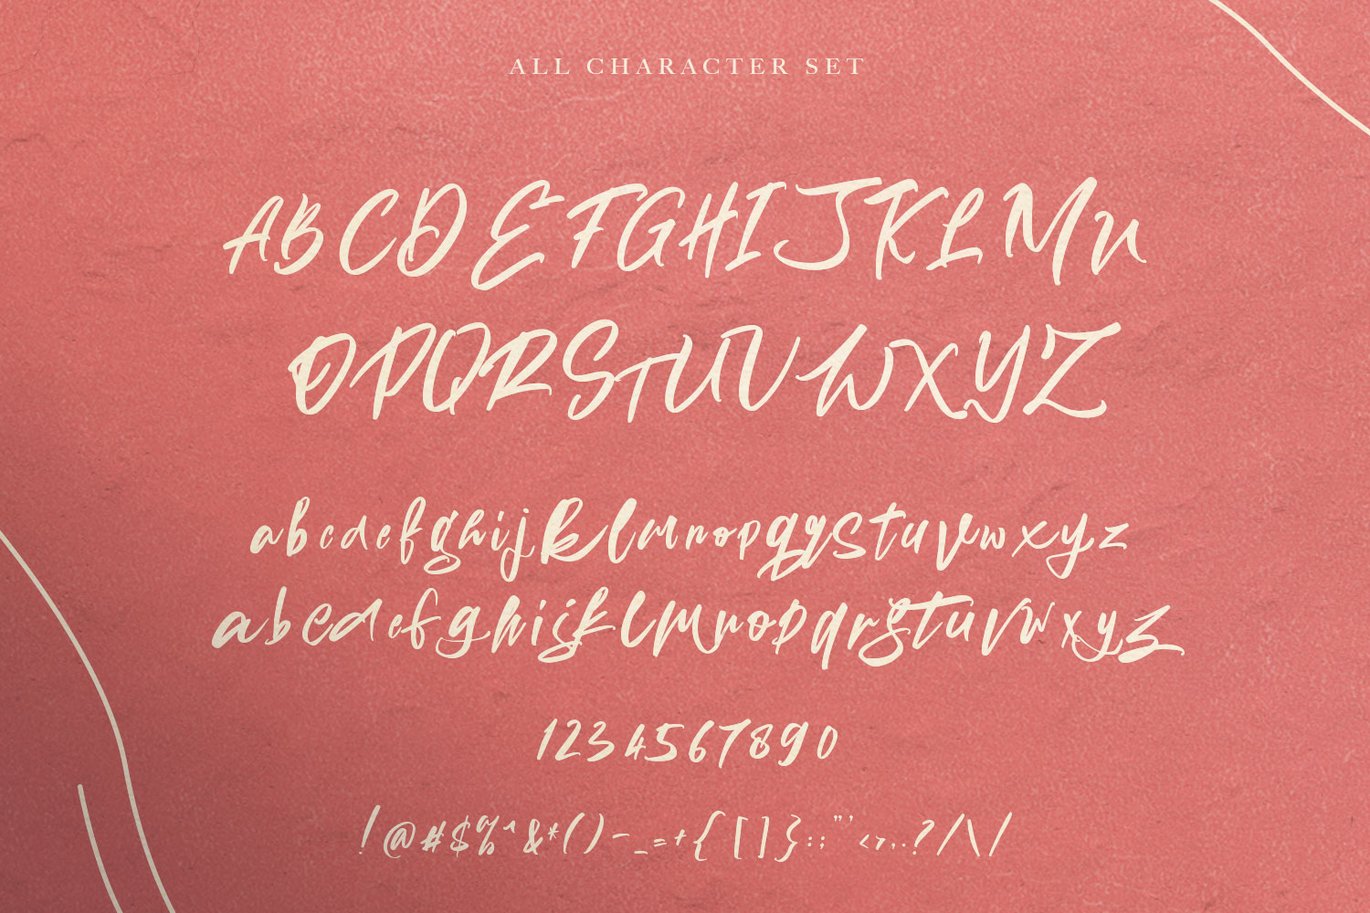 ALL CHARACTER SET
ABCDEFGHIJKLMN
OPQRSTUVWXYZ
abcdefghijklmnopqrstuvwxyz
abcdefghijklmnopqrstuvwxyz
1234567890
!@#$%^&*()-_=+{[]}:;"'<>,.?/\/